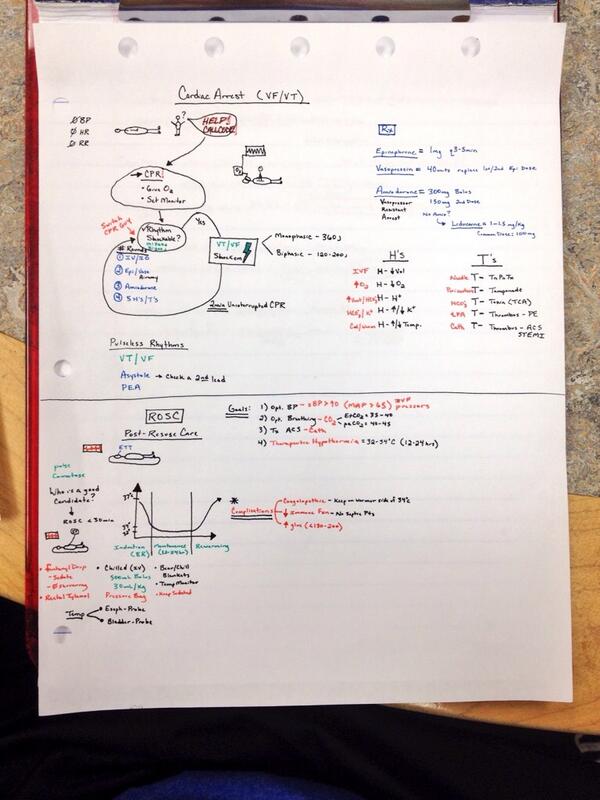 Cardiac Arrest (VF/VT)
Ø BP
Ø HR
Ø RR
?
HELP!
CALL CODE!
→ CPR!
• Give O2
• Set Monitor
Switch
CPR Guy
√ Rhythm
Shockable?
Yes
# Rounds
① IV/IO
② Epi/Vaso
Airway
③ Amiodarone
④ 5 H's/T's
VT/VF
Shock em
Monophasic - 360J
Biphasic - 120-200J
2min Uninterrupted CPR
Rx
Epinephrine = 1mg q3-5min
Vasopressin = 40units replace 1st/2nd Epi Dose
Amiodarone = 300mg Bolus
Vasopressor 150mg 2nd Dose
Resistant
Arrest
No Amio?
Lidocaine = 1-1.5mg/kg
Common Dose: 100mg
H's
IVF H - ↓Vol
↑O2 H - ↓O2
↑Vent/HCO3 H - H+
HCO3/K+ H - ↑/↓ K+
Cool/Warm H - ↑/↓ Temp.
T's
Needle T - TnPoTx
T - Tamponade
HCO3 T - Toxin (TCA)
tPA T - Thrombus - PE
Cath T - Thrombus - ACS
STEMI
Pulseless Rhythms
VT/VF
Asystole → Check a 2nd lead
PEA
ROSC
Post-Resusc Care
ETT
pulse
Comatose
Who is a good
Candidate?
ROSC <30min
Goals:
1) Opt. BP - SBP>90 (MAP>65) IVF
pressors
2) Opt. Breathing - CO2 EtCO2 = 35-40
paCO2 = 40-45
3) Tx ACS - Cath
4) Therapeutic Hypothermia = 32-34°C (12-24hrs)
37°
34°
32°
Induction
(ER)
Maintenance
(12-24hr)
Rewarming
* Complications
Coagulopathic - Keep on warmer side of 34°C
↓ Immune Fxn - No Septic Pts
↑ gluc (<150-200)
• Fentanyl Drip
- Sedate
- Ø Shivering
• Rectal Tylenol
• Chilled (IV)
500mL Bolus
30mL/Kg
Pressure Bag
• Bear/Chill
Blankets
• Temp Monitor
• Keep Sedated
Temp
Esoph-Probe
Bladder-Probe